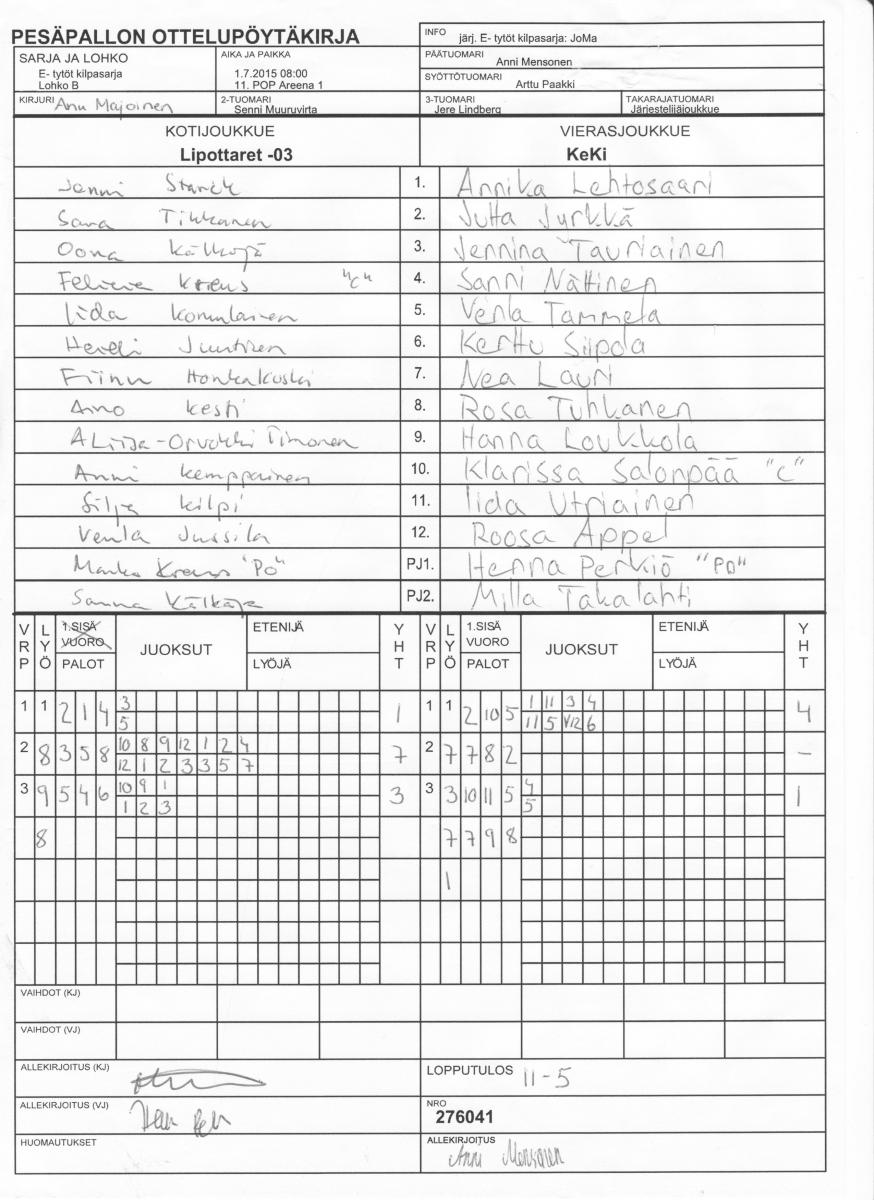 PESÄPALLON OTTELUPÖYTÄKIRJA
INFO järj. E- tytöt kilpasarja: JoMa
SARJA JA LOHKO
E- tytöt kilpasarja
Lohko B
AIKA JA PAIKKA
1.7.2015 08:00
11. POP Areena 1
PÄÄTUOMARI
Anni Mensonen
SYÖTTÖTUOMARI
Arttu Paakki
KIRJURI Anu Majoinen
2-TUOMARI
Senni Muuruvirta
3-TUOMARI
Jere Lindberg
TAKARAJATUOMARI
Järjestelijäjoukkue
KOTIJOUKKUE VIERASJOUKKUE
Lipottaret -03 KeKi
Jenni Starck 1. Annika Lehtosaari
Sara Tikkanen 2. Jutta Jyrkkä
Oona Kälkäjä 3. Jennina Tauriainen
Kreus "C" 4. Sanni Nättinen
Iida Komulainen 5. Venla Tammela
Heidi Juntinen 6. Kerttu Siipola
Fiinu Honkakoski 7. Nea Lauri
Aino Kesti 8. Rosa Tuhkanen
Aliisa-Orvokki Timonen 9. Hanna Loukkola
Anni Kemppainen 10. Klarissa Salonpää "C"
Silja Kilpi 11. Iida Utriainen
Venla Jussila 12. Roosa Appel
Marko Kreus "PO" PJ1. Henna Perkiö "PO"
Sanna Kälkäjä PJ2. Milla Takalahti
VRP LYÖ 1.SISÄ VUORO PALOT JUOKSUT ETENIJÄ LYÖJÄ YHT VRP LYÖ 1.SISÄ VUORO PALOT JUOKSUT ETENIJÄ LYÖJÄ YHT
1 1 2 1 4 3 1 1 1 2 10 5 1 11 3 4 4
5 11 5 V12 6
2 8 3 5 8 10 8 9 12 1 2 4 7 2 7 7 8 2 -
12 1 2 3 3 5 7
3 9 5 4 6 10 9 1 3 3 3 10 11 5 4 1
1 2 3 5
8 7 7 9 8
1
VAIHDOT (KJ)
VAIHDOT (VJ)
ALLEKIRJOITUS (KJ)
LOPPUTULOS 11-5
ALLEKIRJOITUS (VJ)
NRO
276041
HUOMAUTUKSET
ALLEKIRJOITUS
Anni Mensonen